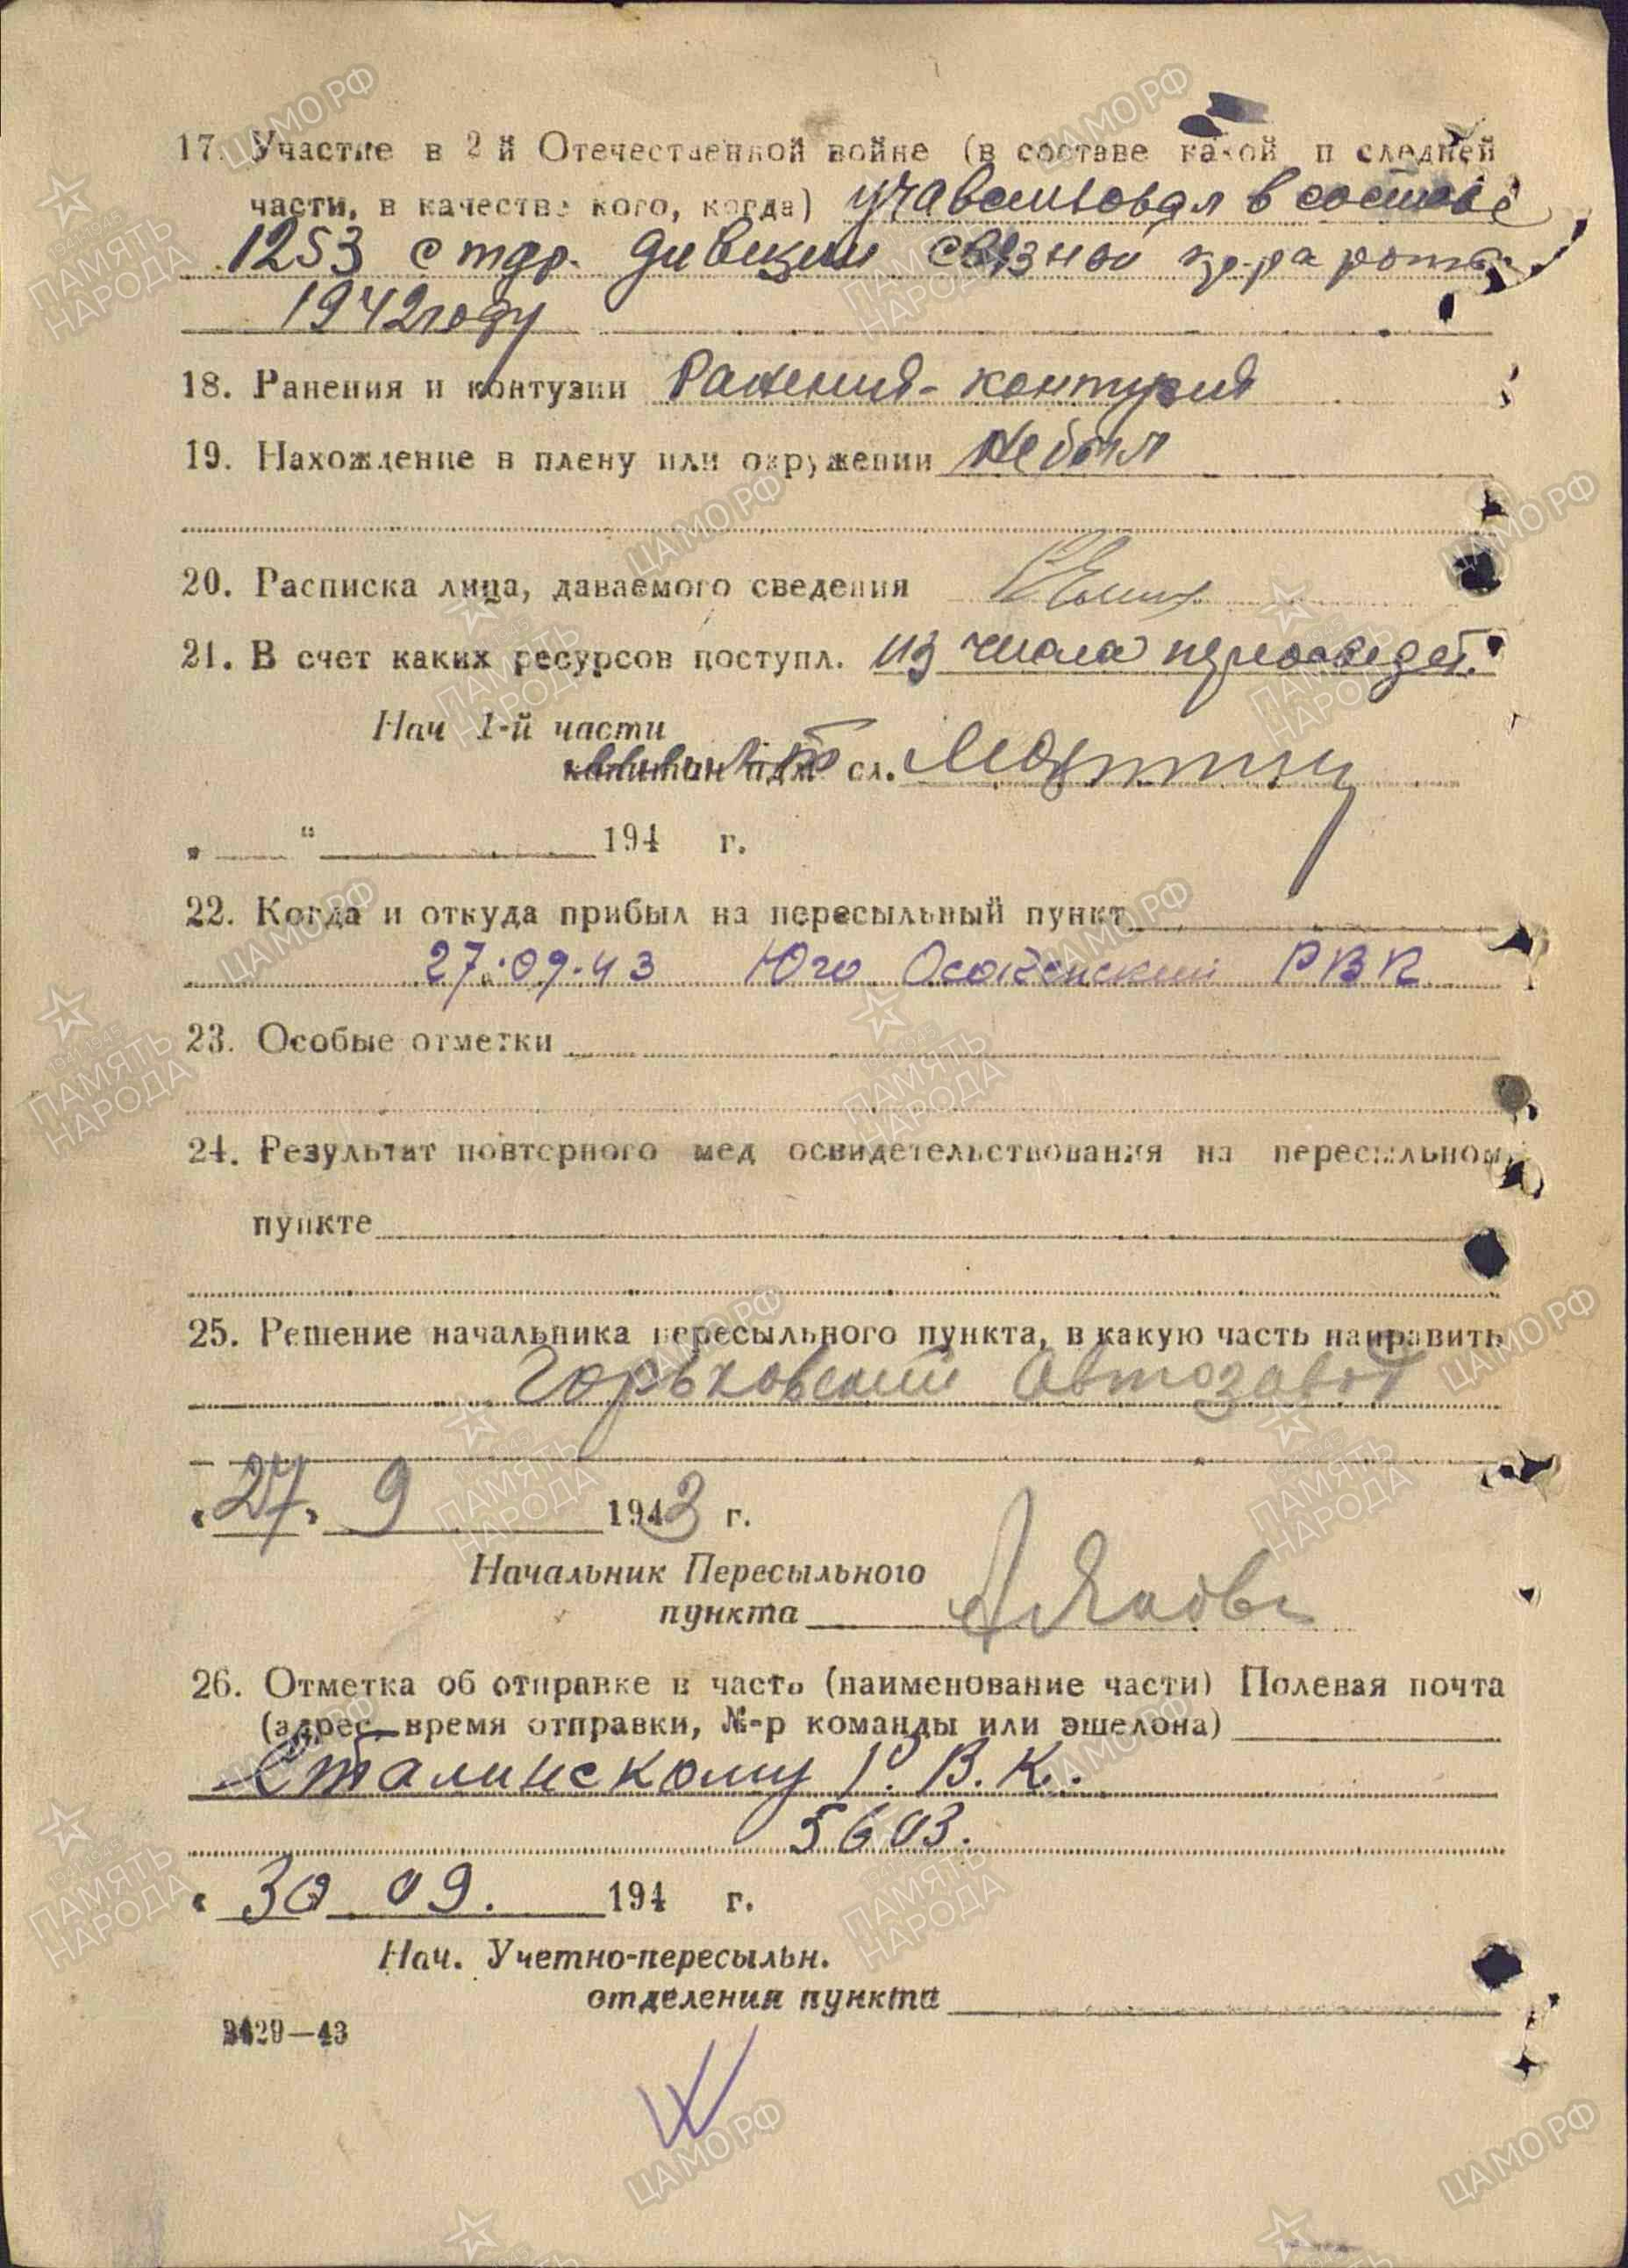 17. Участие в 2 й Отечественной войне (в составе какой п следней
части, в качестве кого, когда) учавствовал в составе
1253 стдр. дивизии связной рота
1942 году
18. Ранения и контузии Ранения - контузия
19. Нахождение в плену или окружении Не был
20. Расписка лица, даваемого сведения
21. В счет каких ресурсов поступл. из числа
Нач 1-й части
капитан адм сл.
„ “ 194 г.
22. Когда и откуда прибыл на пересыльный пункт
27.09.43 Юго РВК
23. Особые отметки
24. Результат повторного мед освидетельствования на пересыльном
пункте
25. Решение начальника пересыльного пункта, в какую часть направить
Горьковский Автозавод
« 27 » 9 1943 г.
Начальник Пересыльного
пункта
26. Отметка об отправке в часть (наименование части) Полевая почта
(адрес время отправки, №-р команды или эшелона)
Сталинскому Р.В.К.
5603.
« 30 09. 194 г.
Нач. Учетно-пересыльн.
отделения пункта
2429—43
ЦАМО РФ
ПАМЯТЬ
НАРОДА